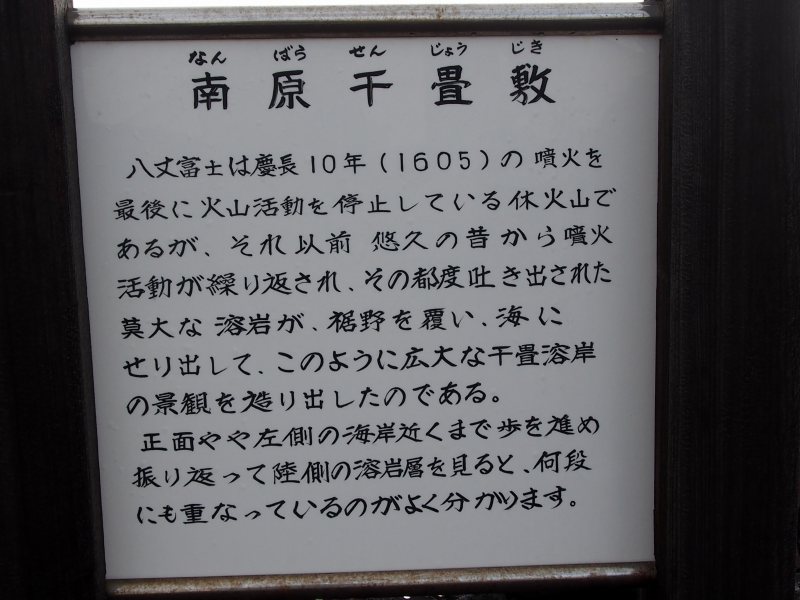 なん ばら せん じょう じき
南原千畳敷
八丈富士は慶長10年(1605)の噴火を
最後に火山活動を停止している休火山で
あるが、それ以前 悠久の昔から噴火
活動が繰り返され、その都度吐き出された
莫大な溶岩が、裾野を覆い、海に
せり出して、このように広大な千畳溶岸
の景観を造り出したのである。
正面やや左側の海岸近くまで歩を進め
振り返って陸側の溶岩層を見ると、何段
にも重なっているのがよく分かります。